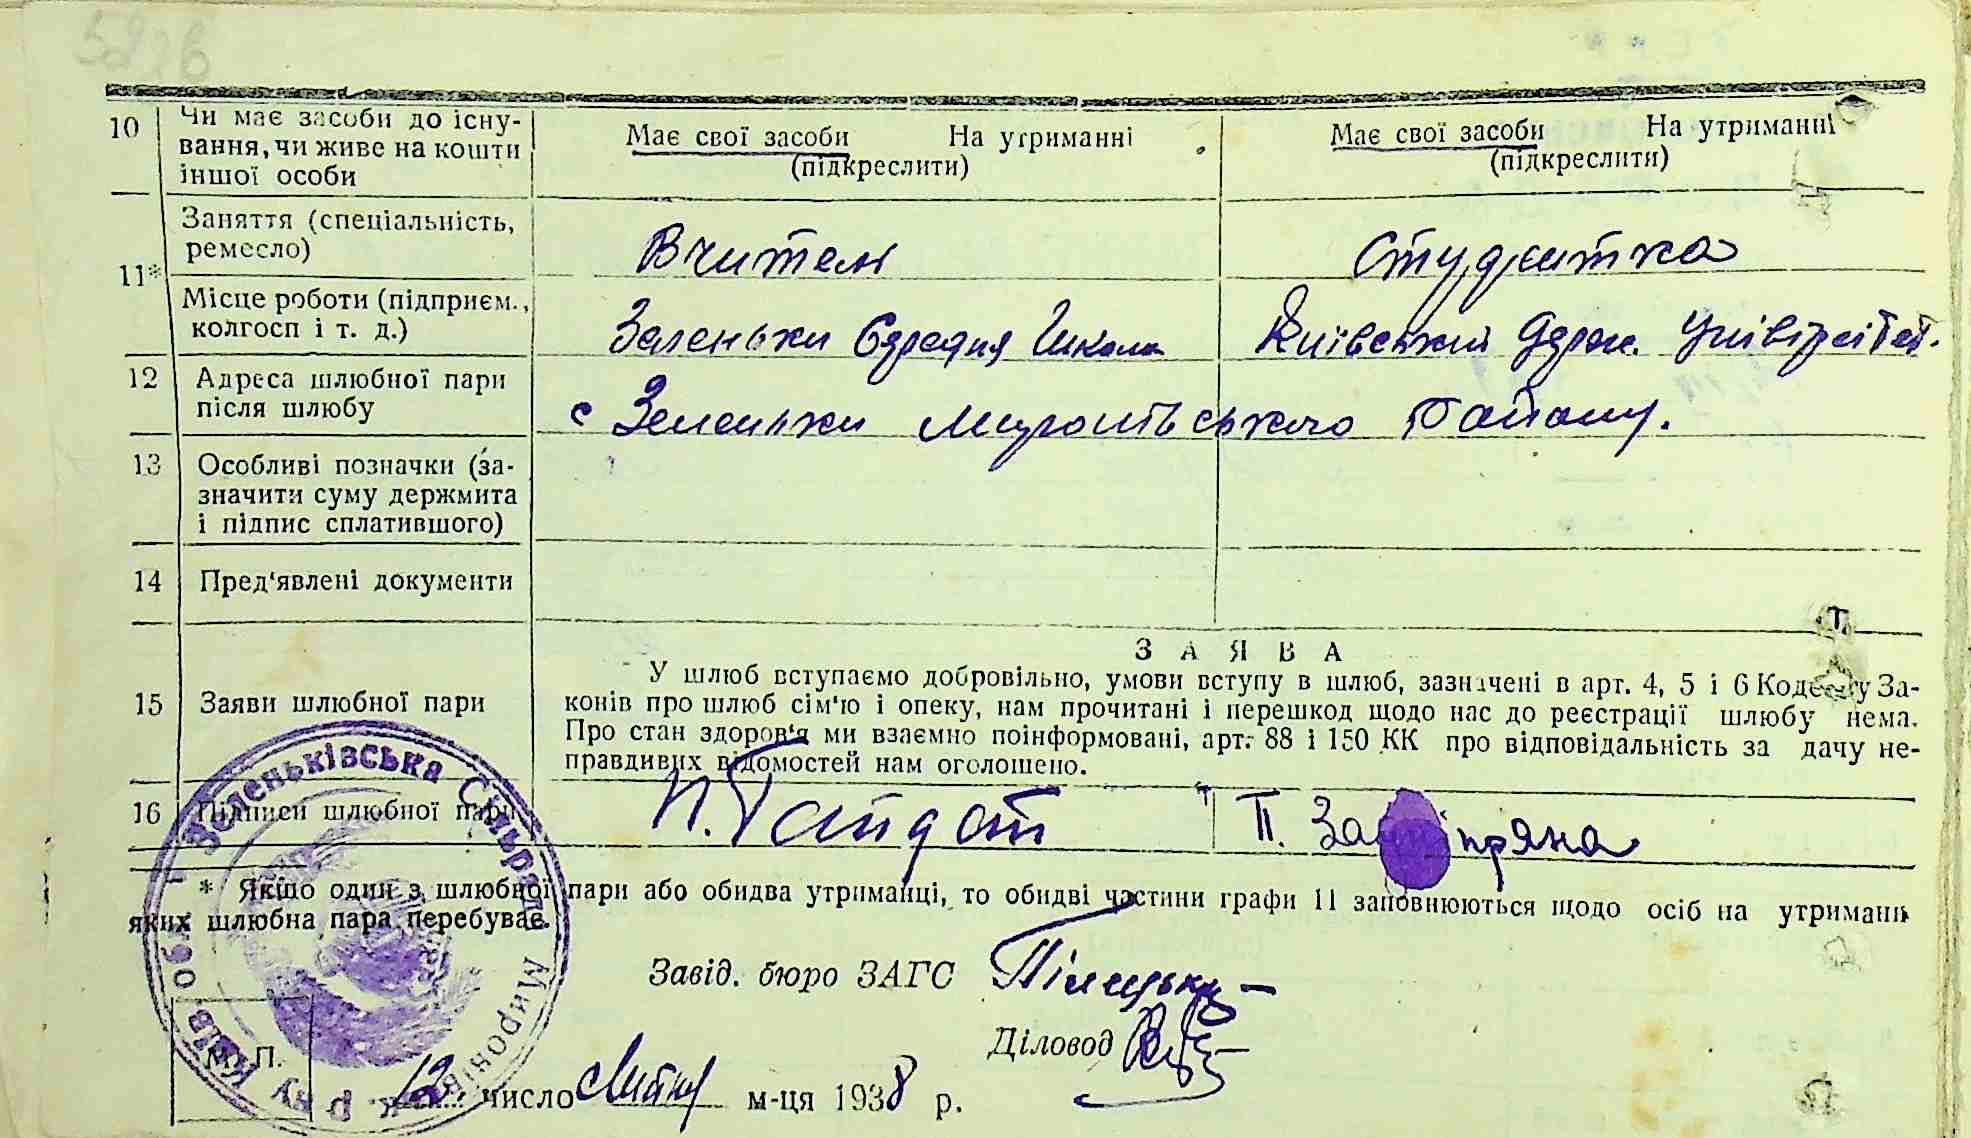 5226
10 Чи має засоби до існу-
вання, чи живе на кошти
іншої особи
Має свої засоби На утриманні
(підкреслити)
Має свої засоби На утриманні
(підкреслити)
11* Заняття (спеціальність,
ремесло)
Вчитель
Студентка
Місце роботи (підприєм.,
колгосп і т. д.)
Зеленьки Середня Школа
Київський Держ. Університет.
12 Адреса шлюбної пари
після шлюбу
с Зеленьки Миронівського Району.
13 Особливі позначки (за-
значити суму держмита
і підпис сплатившого)
14 Пред'явлені документи
15 Заяви шлюбної пари
ЗАЯВА
У шлюб вступаємо добровільно, умови вступу в шлюб, зазначені в арт. 4, 5 і 6 Кодексу За-
конів про шлюб сім'ю і опеку, нам прочитані і перешкод щодо нас до реєстрації шлюбу нема.
Про стан здоров'я ми взаємно поінформовані, арт. 88 і 150 КК про відповідальність за дачу не-
правдивих відомостей нам оголошено.
16 Підписи шлюбної пари
П.
П.
* Якщо один з шлюбної пари або обидва утриманці, то обидві частини графи 11 заповнюються щодо осіб на утриманн
яких шлюбна пара перебуває.
Завід. бюро ЗАГС
Діловод
М. П.
число м-ця 1938 р.
Зеленьківська Сільрада Миронівськ. р-ну Київ обл